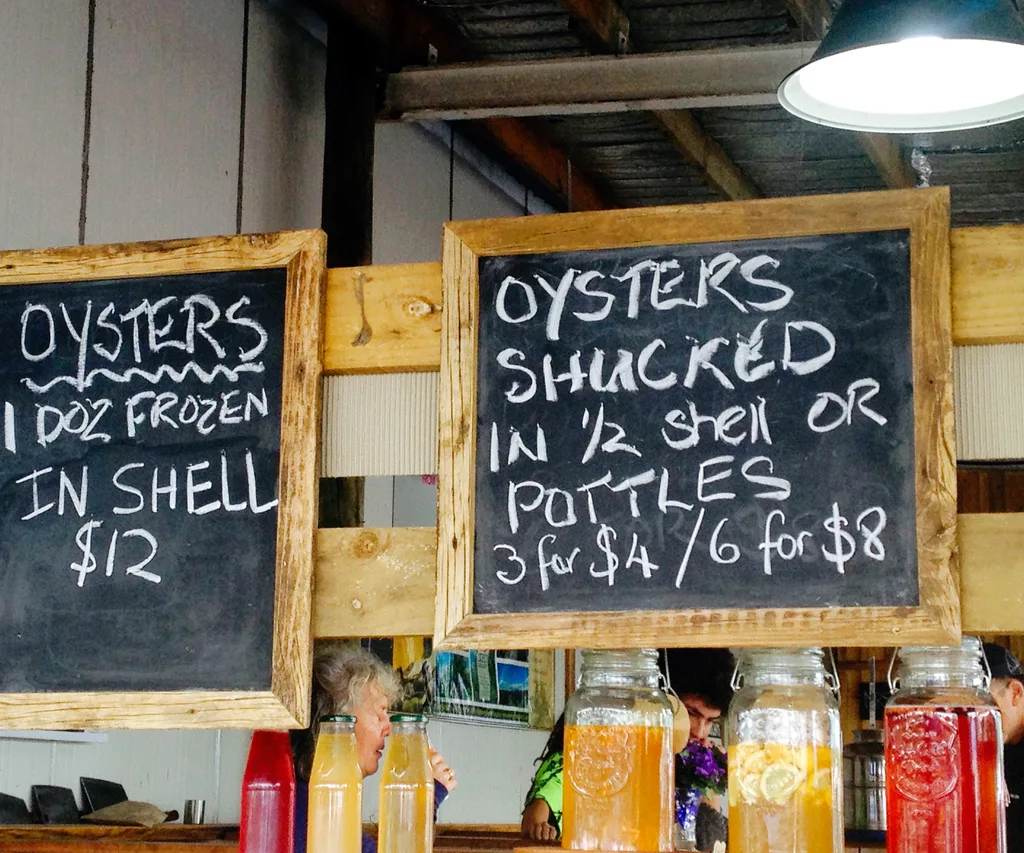 OYSTERS
1 DOZ FROZEN
IN SHELL
$12
OYSTERS
SHUCKED
IN 1/2 shell OR
POTTLES
3 for $4 / 6 for $8